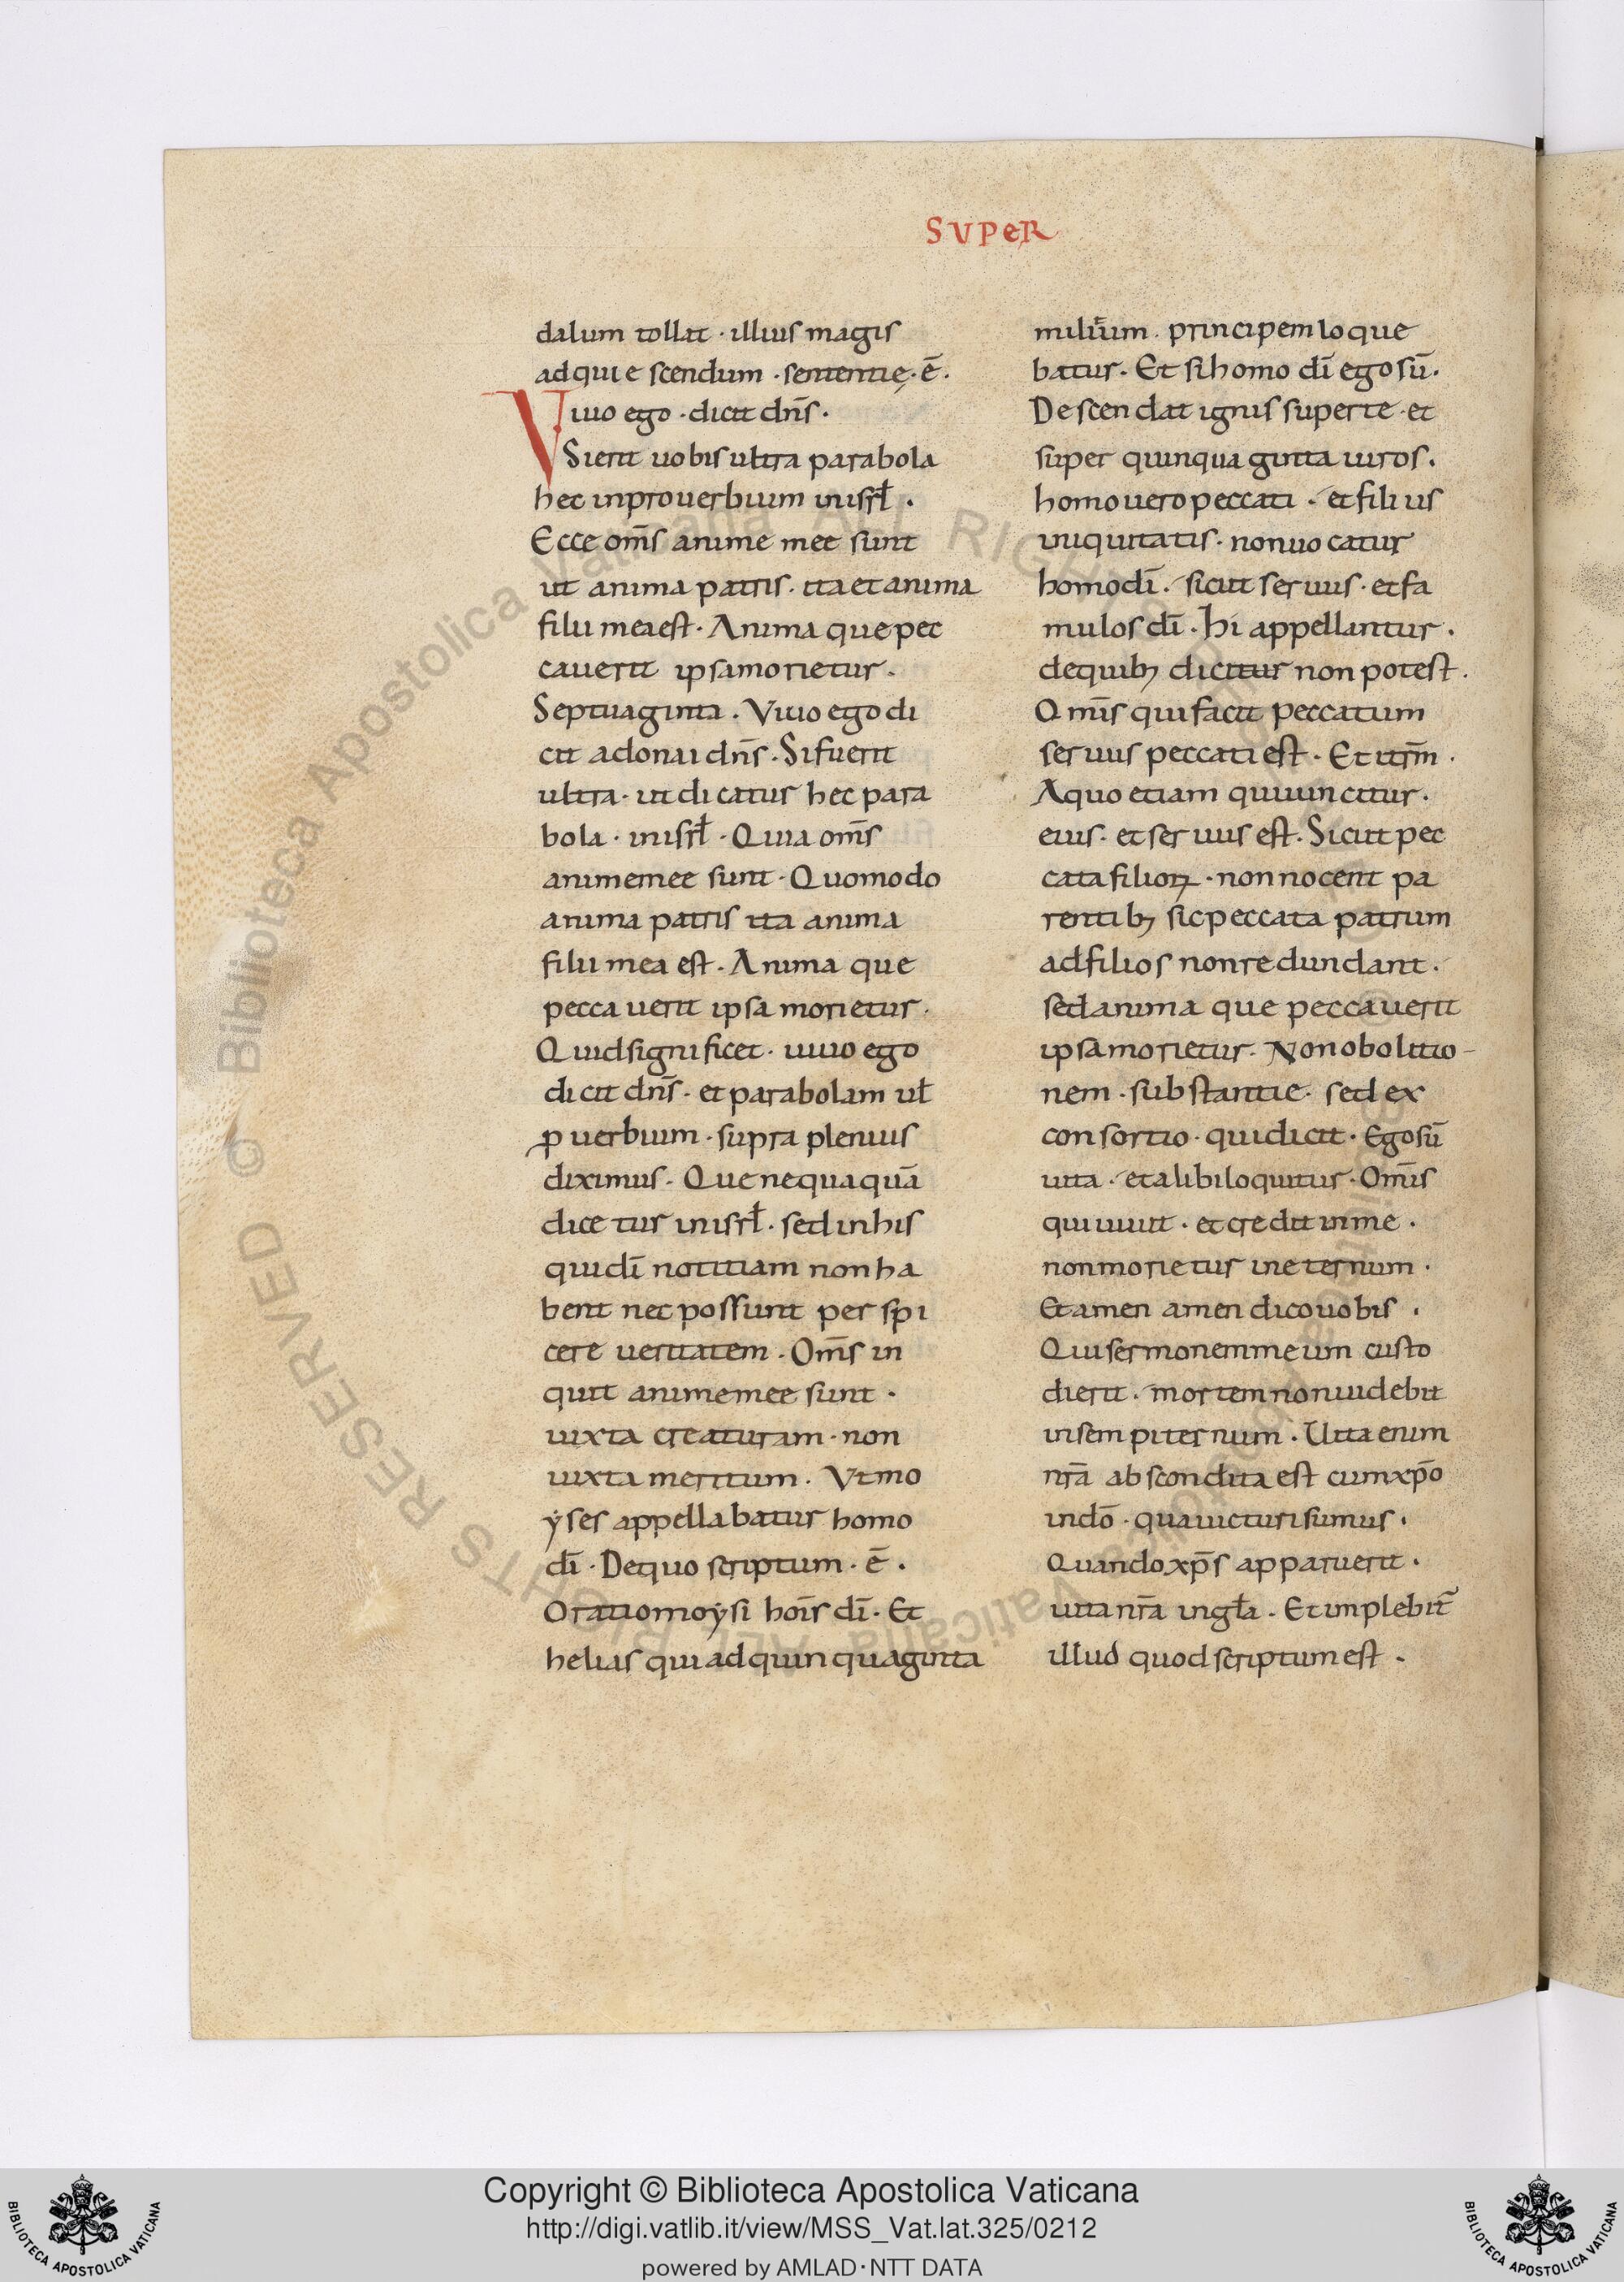 SVPER
dalum tollat · illius magis
adquie scendum · sententię · ē ·
Viuo ego · dicit dn̄s ·
Sierit uobis ultra parabola
hec inprouerbium inisrł ·
Ecce om̄s anime mee sunt
ut anima patris · ita et anima
filii mea est · Anima que pec
cauerit ipsa morietur ·
Septuaginta · Viuo ego di
cit adonai dn̄s · Si fuerit
ultra · ut dicatur hec para
bola · inisrł · Quia om̄s
anime mee sunt · Quomodo
anima patris ita anima
filii mea est · Anima que
pecca uerit ipsa morietur ·
Quid significet · uiuo ego
dicit dn̄s · et parabolam uł
ꝓuerbium · supra plenius
diximus · Que nequaquā
dicetur inisrł · sed in his
qui dī notitiam non ha
bent nec possunt perspi
cere ueritatem · Om̄s in
quit anime mee sunt ·
iuxta creaturam · non
iuxta meritum · Vt mo
yses appellabatur homo
dī · De quo scriptum · ē ·
Oratio moysi hoīs dī · Et
helias qui ad quinquaginta
miliū̄m · principem loque
batur · Et si homo dī ego sū ·
Descendat ignis super te · et
super quinquaginta uiros ·
homo uero peccati · et filius
iniquitatis · non uocatur
homo dī · sicut seruus · et fa
mulos dī · hi appellantur ·
de quibꝫ dicitur non potest ·
Om̄is qui facit peccatum
seruus peccati est · Et itr̄m ·
A quo etiam qui uincitur ·
eius · et seruus est · Sicut pec
cata filioꝝ · non nocent pa
rentibꝫ sic peccata patrum
ad filios non redundant ·
sed anima que peccauerit
ipsa morietur · Non obolitio-
nem · substantie · sed ex
consortio · qui dicit · Ego sū
uita · et alibi loquitur · Om̄is
qui uiuit · et credit in me ·
non morietur ineternum ·
Et amen amen dico uobis ·
Qui sermonem meum custo
dierit · mortem non uidebit
insempiternum · Uita enim
nr̄a abscondita est cum xp̄o
in dō · qua uicturi sumus ·
Quando xp̄s apparuerit ·
uita nr̄a in gł̄a · Et implebit̄
illud quod scriptum est ·
© Biblioteca Apostolica Vaticana ALL RIGHTS RESERVED
Copyright © Biblioteca Apostolica Vaticana
http://digi.vatlib.it/view/MSS_Vat.lat.325/0212
powered by AMLAD·NTT DATA
BIBLIOTECA APOSTOLICA VATICANA
BIBLIOTECA APOSTOLICA VATICANA